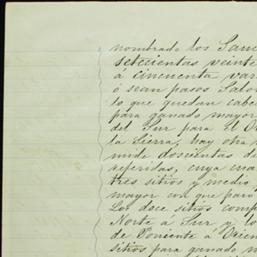 nombrado los San
setecientas veinte
á cincuenta var
ó sean pasos Salo
lo que quedan cabe
para ganado mayor
del Sur para el O
la Sierra, hay otra
mide doscientas d
referidas, cuya
tres sitios y medio
mayor con que
Los doce sitios comp
Norte á Sur y lo
de Poniente á Orien
sitios para ganado m